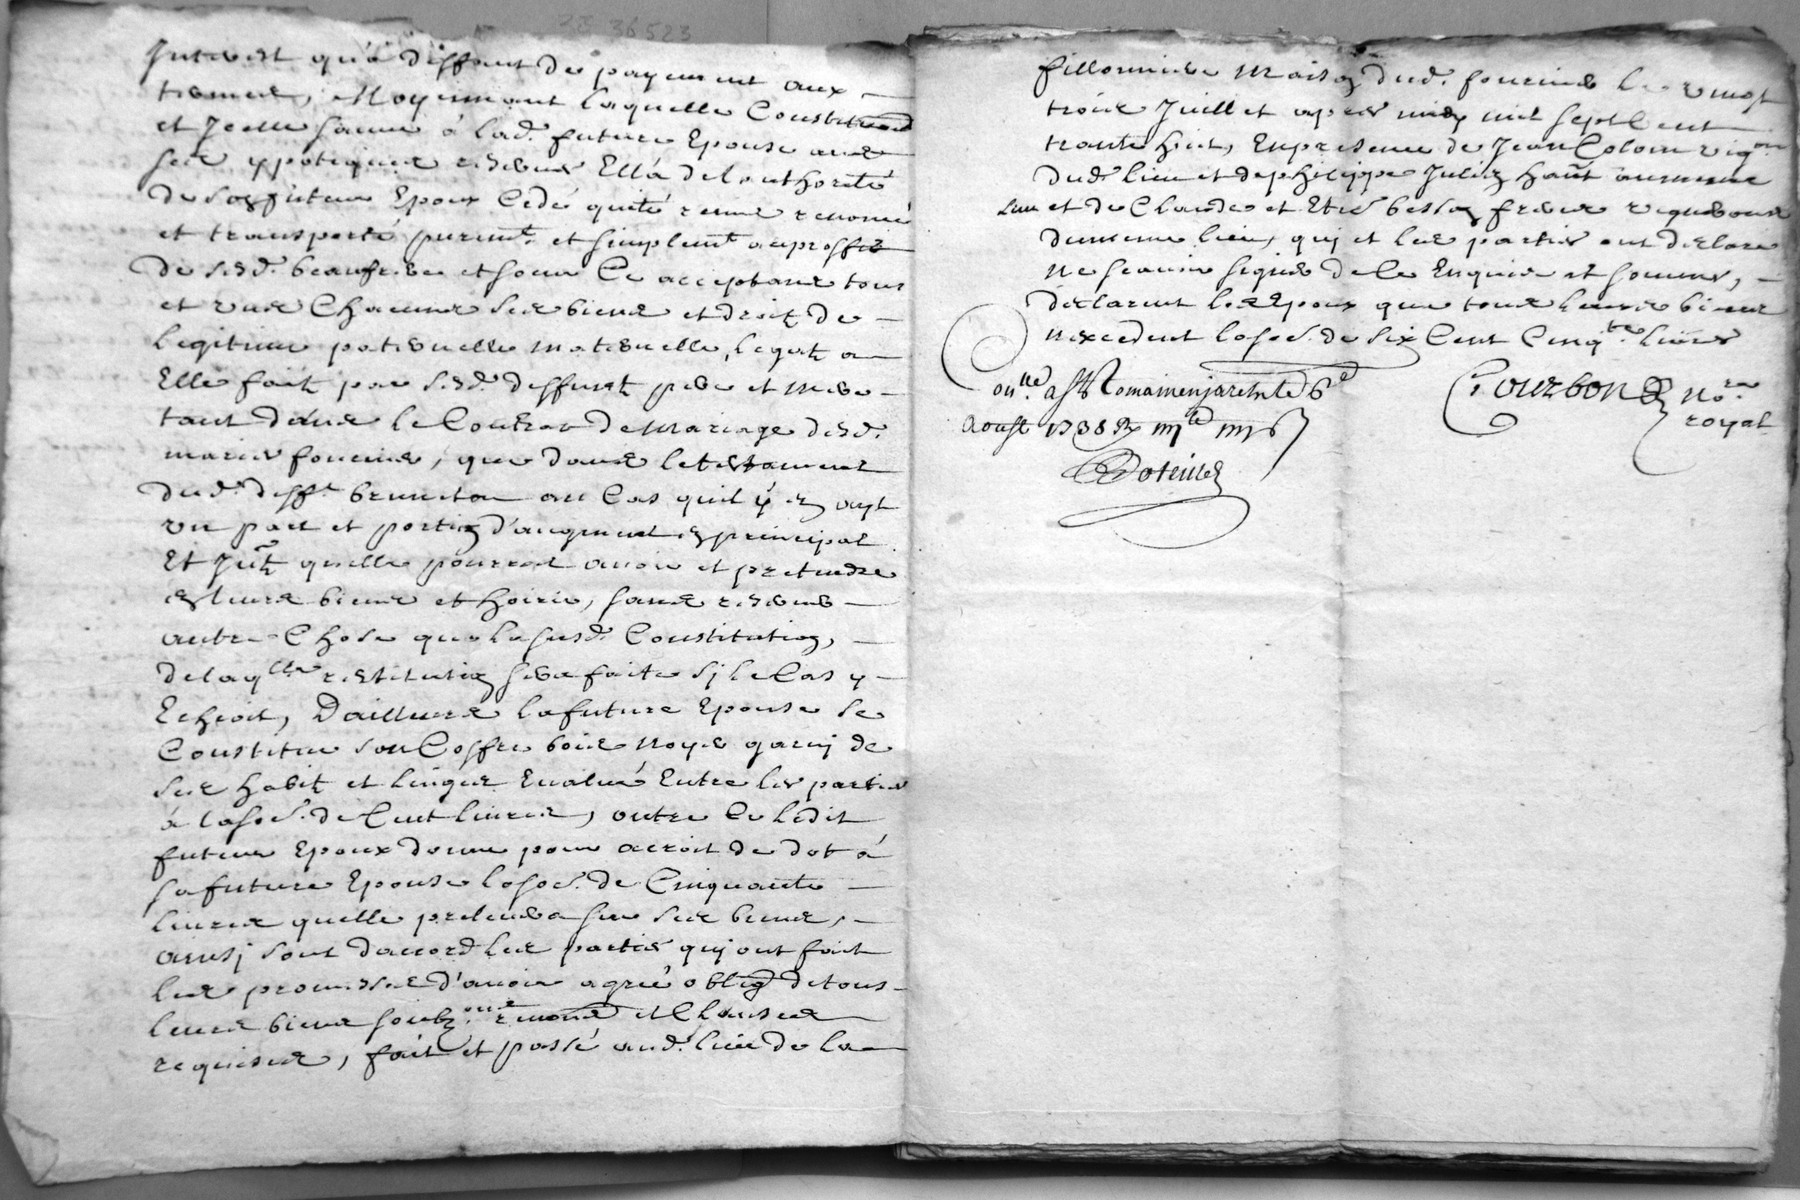 3E 36523
Interest qu'a deffaut de payement aux
termes, Moyennant laquelle Constitu͠on
et Icelle sauve à lad. future Epouse avec
ses ypoteques reserves Ell'a de l'authorité
de son futeur Epoux Cedé quité remis renoncé
et transporté puremt. et simplemt. au proffit
de sesd. beaufrere et soeur Ce acceptans tous
et uns Chacuns ses biens et droitz de
legitime paternelle maternelle, legatz a
Elle faitz par sesd. deffuntz pere et mere
tant dans le Contrat de Mariage desd.
mariés fournier, que dans le testament
dud. deff.t au Cas quil y en ayt
un part et portion d'augment en principal
Et Intz quelle pourroit avoir et pretendre
es leurs biens et hoirie, sans reserve
autre Chose que la susd. Constitution,
de laqlle restitution sera faite sj le Cas y
Echeoit, D'ailleurs la future Epouse se
Constitue son Coffre bois noyer garnj de
ses habitz et linges Evalué Entre les parties
à la so.e de Cent livres, outre Ce ledit
futeur Epoux donne pour acroit de dot à
sa future Epouse la so.e de Cinquante
livres quelle prelevera sur ses biens,
ainsj sont d'accord les parties quj ont fait
les promesses d'avoir agreé oblig.on de tous
leurs biens et Clauses
requises, fait et passé aud. lieu de la
fillonniere Maison dud. fournier le vingt
trois Juillet apres midy mil sept Cent
trante huit, En presence de Jean Colom vign.on
dud. lieu et de philippe Julien hant au mesme
lieu et de Claude et Etie besson freres vignerons
du mesme lieu, quj et les parties ont declaré
ne scavoir signer de Ce Enquis et sommés,
declarent les Epoux que tous leurs biens
n'excedent la so.e de six Cent Cinqte. livres
Courbon no.re
royal
on.lle a St Romain en jarest le 6e
Aoust 1738 R